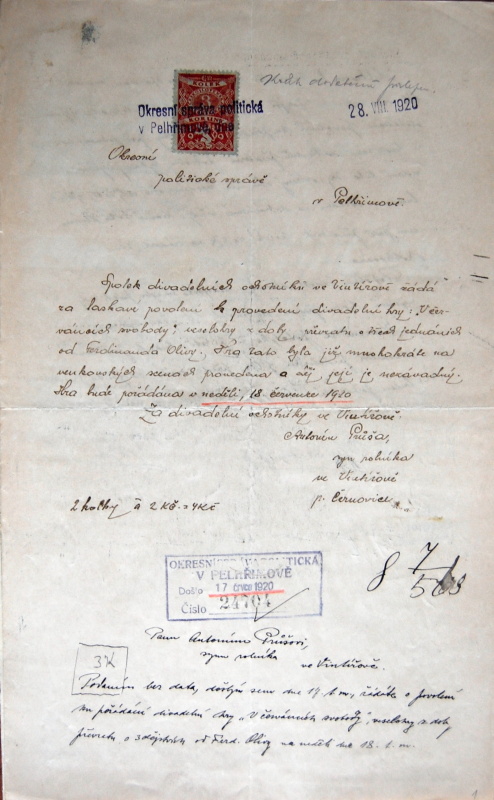 Okresní správa politická
v Pelhřimově, dne
28. VIII. 1920
KOLEK
Okresní
politické správě
v Pelhřimově.
Spolek divadelních ochotníků ve Vintířově žádá
za laskavé povolení k provedení divadelní hry: „V čer-
váncích svobody", veselohry z doby převratu o třech jednáních
od Ferdinanda Olivy. Hra tato byla již mnohokráte na
venkovských scenách provedena a děj její je nezávadný.
Hra bude pořádána v neděli, 18. července 1920
Za divadelní ochotníky ve Vintířově.
Antonín Průša,
syn rolníka
ve Vintířově
p. Černovice
2 kolky à 2 Kč = 4 Kč
8 7/
OKRESNÍ SPRÁVA POLITICKÁ
V PELHŘIMOVĚ
Došlo 17 črvce 1920
Číslo 24704
Panu Antonínu Průšovi,
synu rolníka
ve Vintířově.
3K
Podáním bez data, došlým sem dne 17. t. m., žádáte o povolení
ku pořádání divadelní hry „V červáncích svobody", veselohry z doby
převratu o 3 dějstvích od Ferd. Olivy na neděli dne 18. t. m.